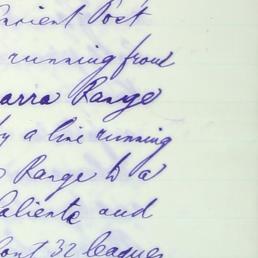 ancient Post
running from
arra Range
by a line running
Range to a
Caliente and
32 leagues